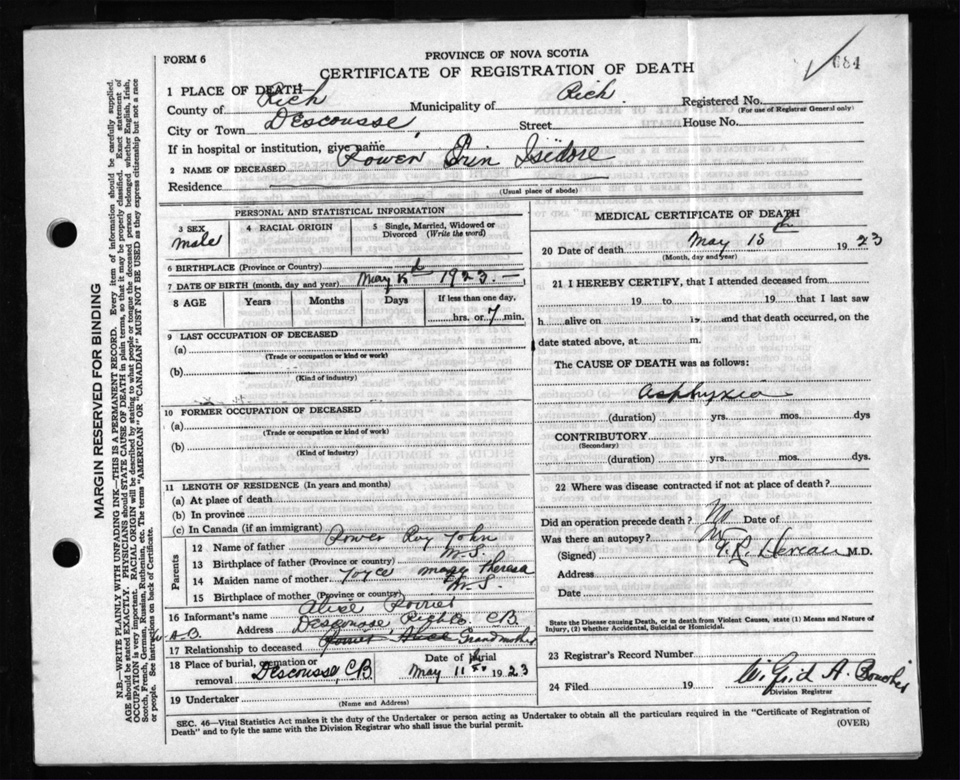 FORM 6
PROVINCE OF NOVA SCOTIA
CERTIFICATE OF REGISTRATION OF DEATH
684
1 PLACE OF DEATH
County of Rich Municipality of Rich Registered No.
(For use of Registrar General only)
City or Town Descousse Street House No.
If in hospital or institution, give name
2 NAME OF DECEASED Power Isidore
Residence
(Usual place of abode)
PERSONAL AND STATISTICAL INFORMATION
3 SEX male
4 RACIAL ORIGIN
5 Single, Married, Widowed or Divorced (Write the word)
6 BIRTHPLACE (Province or Country)
7 DATE OF BIRTH (month, day and year) May 1923.—
8 AGE Years Months Days If less than one day,
hrs. or 7 min.
9 LAST OCCUPATION OF DECEASED
(a)
(Trade or occupation or kind of work)
(b)
(Kind of industry)
10 FORMER OCCUPATION OF DECEASED
(a)
(Trade or occupation or kind of work)
(b)
(Kind of industry)
11 LENGTH OF RESIDENCE (In years and months)
(a) At place of death
(b) In province
(c) In Canada (if an immigrant)
Parents
12 Name of father Power Roy John
13 Birthplace of father (Province or country) N.S.
14 Maiden name of mother Joyce Mary Theresa
15 Birthplace of mother (Province or country) N.S
16 Informant's name Alice Poirier
Address Descousse Rich Co. C.B.
17 Relationship to deceased Grandmother
18 Place of burial, cremation or removal Descousse, C.B. Date of burial May 11 1923
19 Undertaker
(Name and Address)
MEDICAL CERTIFICATE OF DEATH
20 Date of death May 15th 1923
(Month, day and year)
21 I HEREBY CERTIFY, that I attended deceased from
19 to 19 that I last saw
h alive on 19 and that death occurred, on
date stated above, at m.
The CAUSE OF DEATH was as follows:
Asphyxia
(duration) yrs. mos. dys
CONTRIBUTORY
(Secondary)
(duration) yrs. mos. dys
22 Where was disease contracted if not at place of death?
Did an operation precede death? No Date of
Was there an autopsy? No
(Signed) M.D.
Address
Date
State the Disease causing Death, or in death from Violent Causes, state (1) Means and Nature of Injury, (2) whether Accidental, Suicidal or Homicidal.
23 Registrar's Record Number
24 Filed 19
Division Registrar
SEC. 46—Vital Statistics Act makes it the duty of the Undertaker or person acting as Undertaker to obtain all the particulars required in the "Certificate of Registration of
Death" and to fyle the same with the Division Registrar who shall issue the burial permit. (OVER)
MARGIN RESERVED FOR BINDING
N.B.—WRITE PLAINLY WITH UNFADING INK—THIS IS A PERMANENT RECORD. Every item of information should be carefully supplied.
AGE should be stated EXACTLY. PHYSICIANS should STATE CAUSE OF DEATH in plain terms, so that it may be properly classified. Exact statement of
OCCUPATION is very important. RACIAL ORIGIN will be described by stating to what people or tongue the deceased person belonged whether English, Irish,
Scotch, French, German, Russian, Ruthenian, etc. The terms "AMERICAN" OR "CANADIAN" MUST NOT BE USED as they express citizenship but not a race
or people. See instructions on back of Certificate.